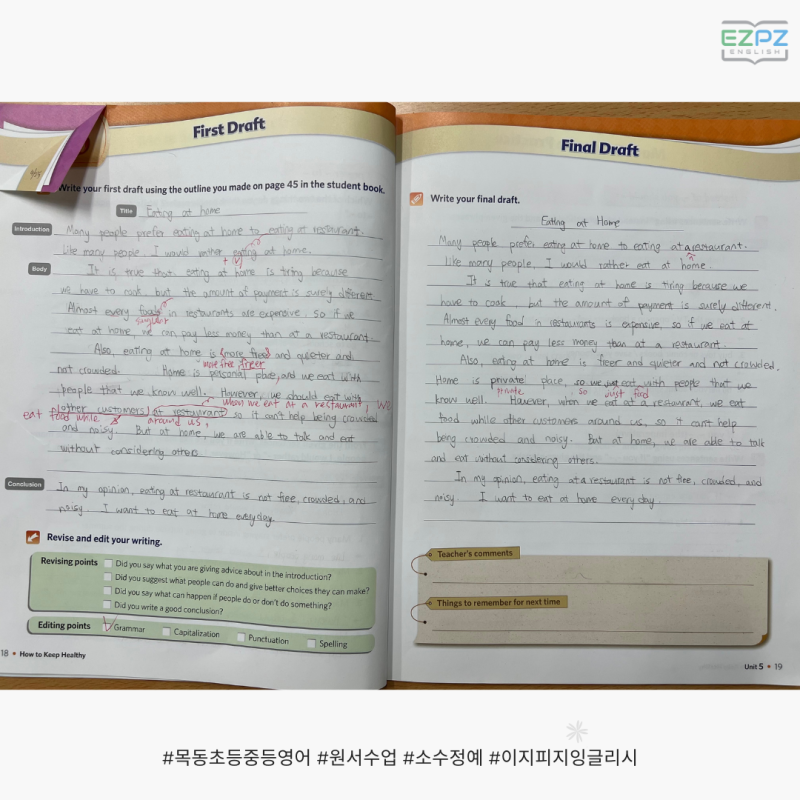 EZPZ
ENGLISH
First Draft
Write your first draft using the outline you made on page 45 in the student book.
Title Eating at home
Introduction Many people prefer eating at home to eating at restaurant.
Like many people, I would rather eating at home.
Body It is true that eating at home is tiring because
we have to cook, but the amount of payment is surely different.
Almost every foods in restaurants are expensive. So if we
singular
eat at home, we can pay less money than at a restaurant.
Also, eating at home is (more free) and quieter and
more free freer
not crowded. Home is personal place, and we eat with
people that we know well. However, we should eat with
when we eat at a restaurant, we
(other customers) (at restaurant) so it can't help being crowded
eat food while around us,
and noisy. But at home, we are able to talk and eat
without considering others
Conclusion In my opinion, eating at restaurant is not free, crowded, and
noisy. I want to eat at home everyday.
Revise and edit your writing.
Revising points
Did you say what you are giving advice about in the introduction?
Did you suggest what people can do and give better choices they can make?
Did you say what can happen if people do or don't do something?
Did you write a good conclusion?
Editing points Grammar Capitalization Punctuation Spelling
18 • How to Keep Healthy
Final Draft
Write your final draft.
Eating at Home
Many people prefer eating at home to eating at a restaurant.
Like many people, I would rather eat at home.
It is true that eating at home is tiring because we
have to cook, but the amount of payment is surely different.
Almost every food in restaurants is expensive, so if we eat at
home, we can pay less money than at a restaurant.
Also, eating at home is freer and quieter and not crowded.
Home is private place, so we just eat with people that we
private so just food
know well. However, when we eat at a restaurant, we eat
food while other customers around us, so it can't help
being crowded and noisy. But at home, we are able to talk
and eat without considering others.
In my opinion, eating at a restaurant is not free, crowded, and
noisy. I want to eat at home every day.
Teacher's comments
Things to remember for next time
Unit 5 • 19
#목동초등중등영어 #원서수업 #소수정예 #이지피지잉글리시